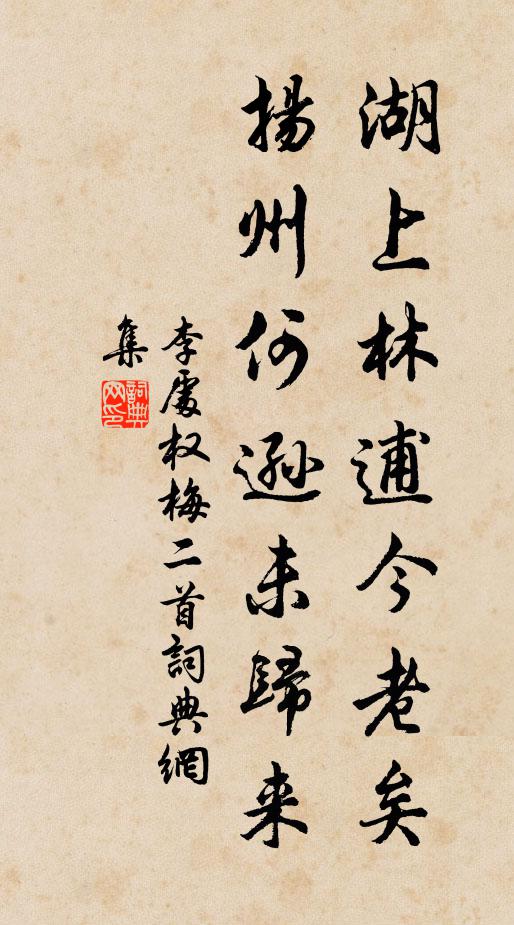 湖上林逋今老矣
揚州何遜未歸来
李處权梅二首詞典網
集
詞典网印